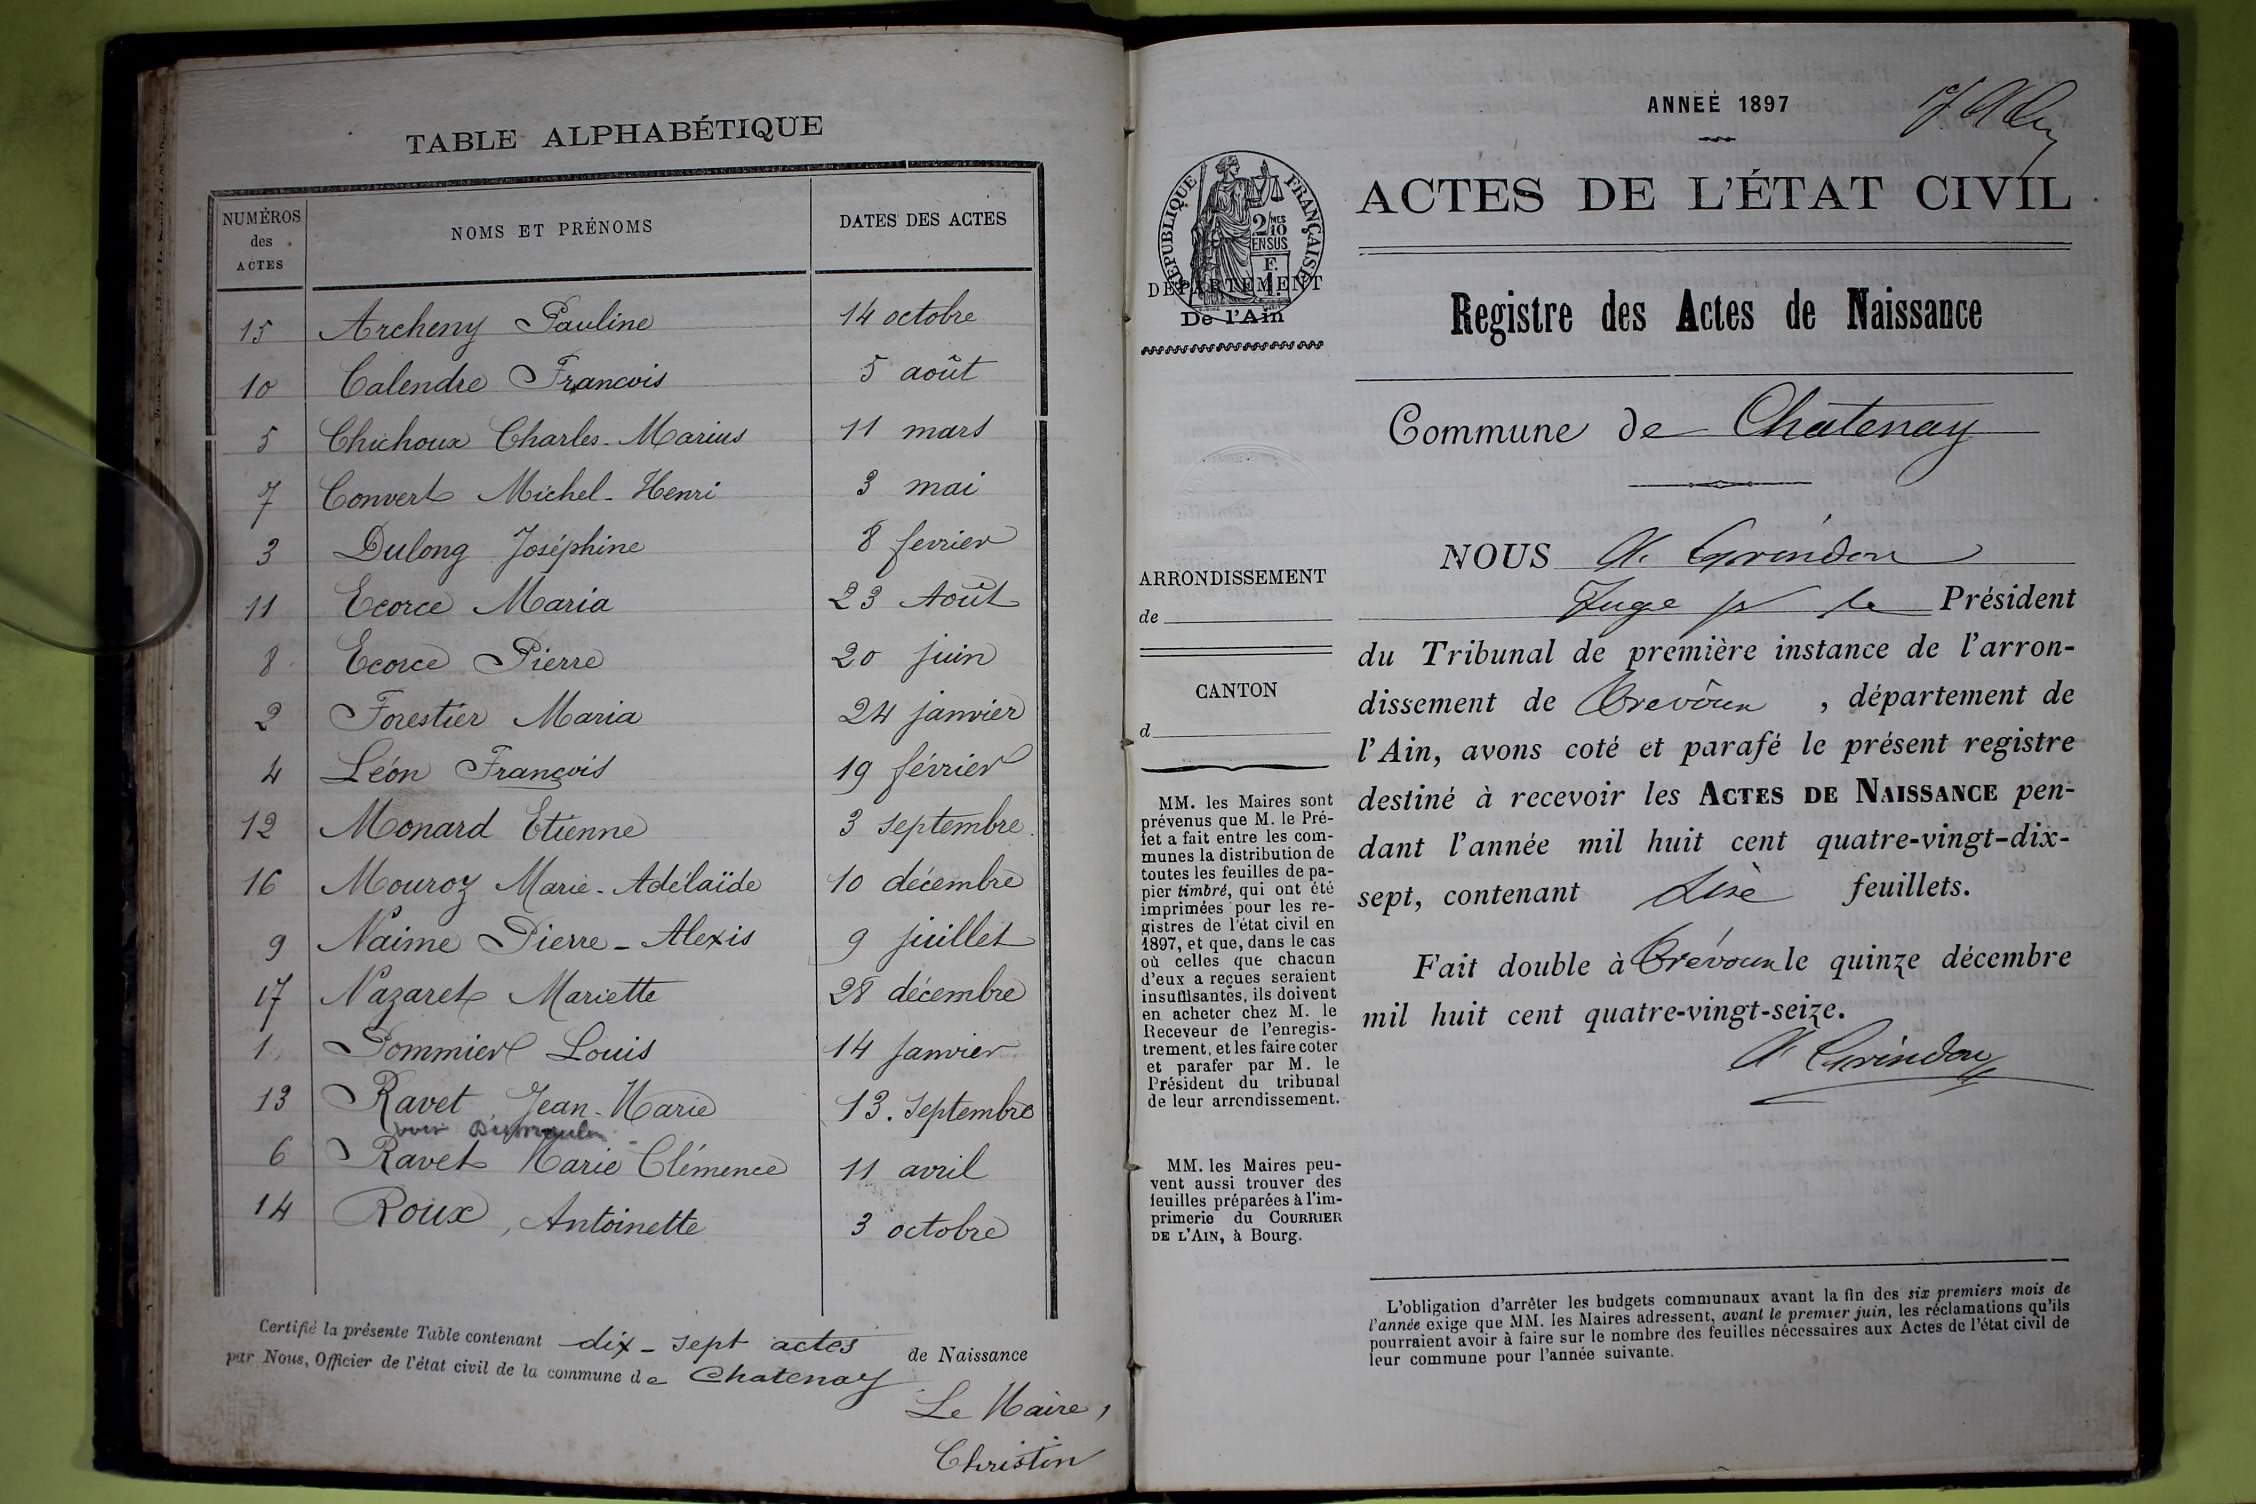 TABLE ALPHABÉTIQUE
NUMÉROS des ACTES NOMS ET PRÉNOMS DATES DES ACTES
15 Archeny Pauline 14 octobre
10 Calendre Francois 5 août
5 Chichoux Charles-Marius 11 mars
7 Convert Michel-Henri 3 mai
3 Dulong Joséphine 8 fevrier
11 Ecorce Maria 23 Août
8 Ecorce Pierre 20 juin
2 Forestier Maria 24 janvier
4 Léon François 19 février
12 Monard Etienne 3 septembre
16 Mouroz Marie-Adélaïde 10 décembre
9 Naime Pierre-Alexis 9 juillet
17 Nazaret Mariette 28 décembre
1 Pommier Louis 14 janvier
13 Ravet Jean-Marie 13. septembre
voir
6 Ravet Marie Clémence 11 avril
14 Roux, Antoinette 3 octobre
Certifié la présente Table contenant dix-sept actes de Naissance
par Nous, Officier de l'état civil de la commune de Chatenay
Le Maire,
Christin
ANNEÉ 1897
RÉPUBLIQUE FRANÇAISE
2/10 MES
EN SUS
1 F.
DÉPARTEMENT
De l'Ain
ARRONDISSEMENT
de
CANTON
d
MM. les Maires sont
prévenus que M. le Pré-
fet a fait entre les com-
munes la distribution de
toutes les feuilles de pa-
pier timbré, qui ont été
imprimées pour les re-
gistres de l'état civil en
1897, et que, dans le cas
où celles que chacun
d'eux a reçues seraient
insuffisantes, ils doivent
en acheter chez M. le
Receveur de l'enregis-
trement, et les faire coter
et parafer par M. le
Président du tribunal
de leur arrondissement.
MM. les Maires peu-
vent aussi trouver des
feuilles préparées à l'im-
primerie du COURRIER
DE L'AIN, à Bourg.
ACTES DE L'ÉTAT CIVIL
Registre des Actes de Naissance
Commune de Chatenay
NOUS A. Grindon
Juge pr le Président
du Tribunal de première instance de l'arron-
dissement de Trevoux, département de
l'Ain, avons coté et parafé le présent registre
destiné à recevoir les ACTES DE NAISSANCE pen-
dant l'année mil huit cent quatre-vingt-dix-
sept, contenant feuillets.
Fait double à Trévoux le quinze décembre
mil huit cent quatre-vingt-seize.
A Grindon
L'obligation d'arrêter les budgets communaux avant la fin des six premiers mois de
l'année exige que MM. les Maires adressent, avant le premier juin, les réclamations qu'ils
pourraient avoir à faire sur le nombre des feuilles nécessaires aux Actes de l'état civil de
leur commune pour l'année suivante.